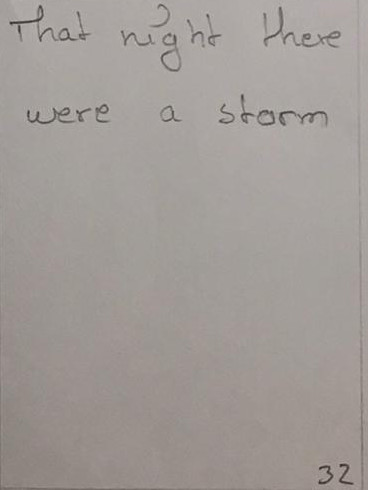 That night there
were a storm
32